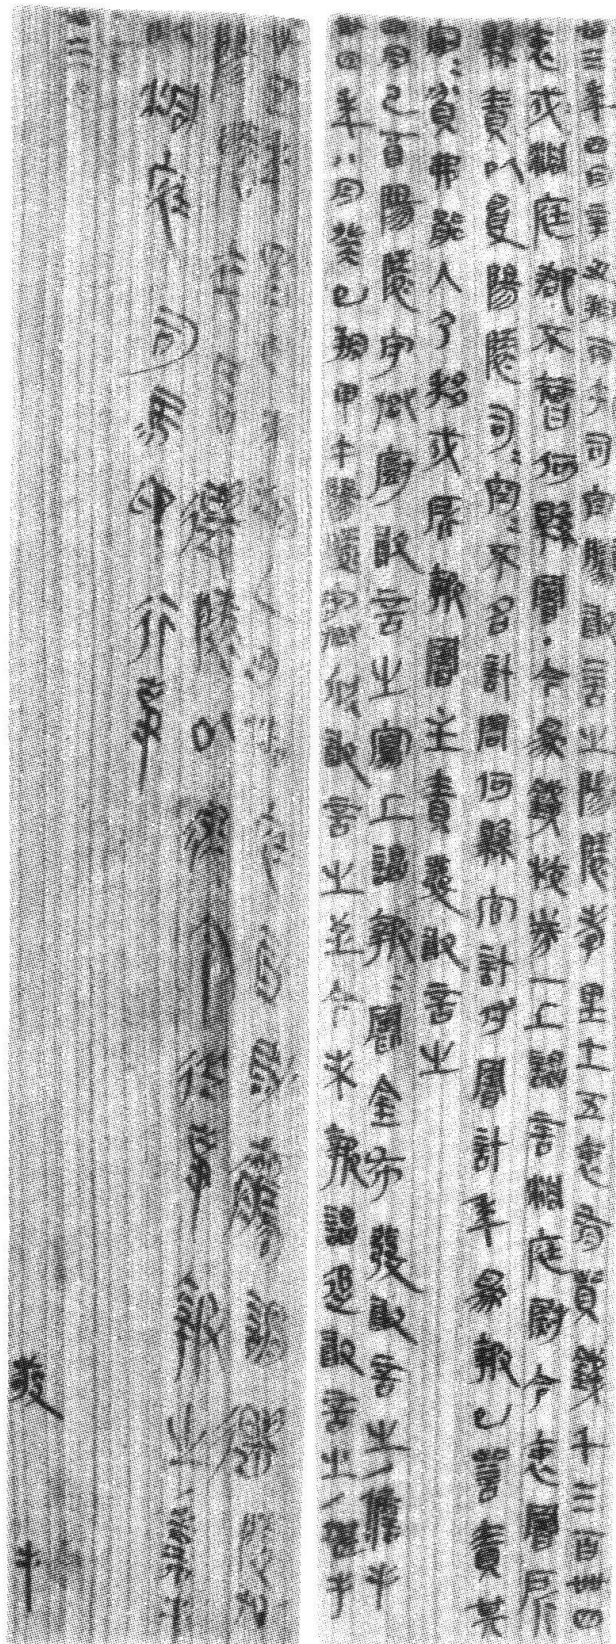 卅三年四月辛丑朔丙午司空騰敢言之陽陵孝里士五衷有貲錢千三百卌四
衷戍洞庭郡不智何縣署·今為錢校券一上謁言洞庭尉令衷署所
縣責以受陽陵司=空=不名計問何縣官計付署計年為報已訾責其
家=貧弗能入乃移戍所報署主責發敢言之
四月己酉陽陵守丞廚敢言之寫上謁報=署金布發敢言之/儋手
卅四年八月癸巳朔甲午陽陵守丞欣敢言之至今未報謁追敢言之/堪手
卅五年四月己未朔乙丑洞庭叚尉觿謂遷陵丞
陽陵卒署遷陵以律令從事報之/嘉手
以洞庭司馬印行事
敬手